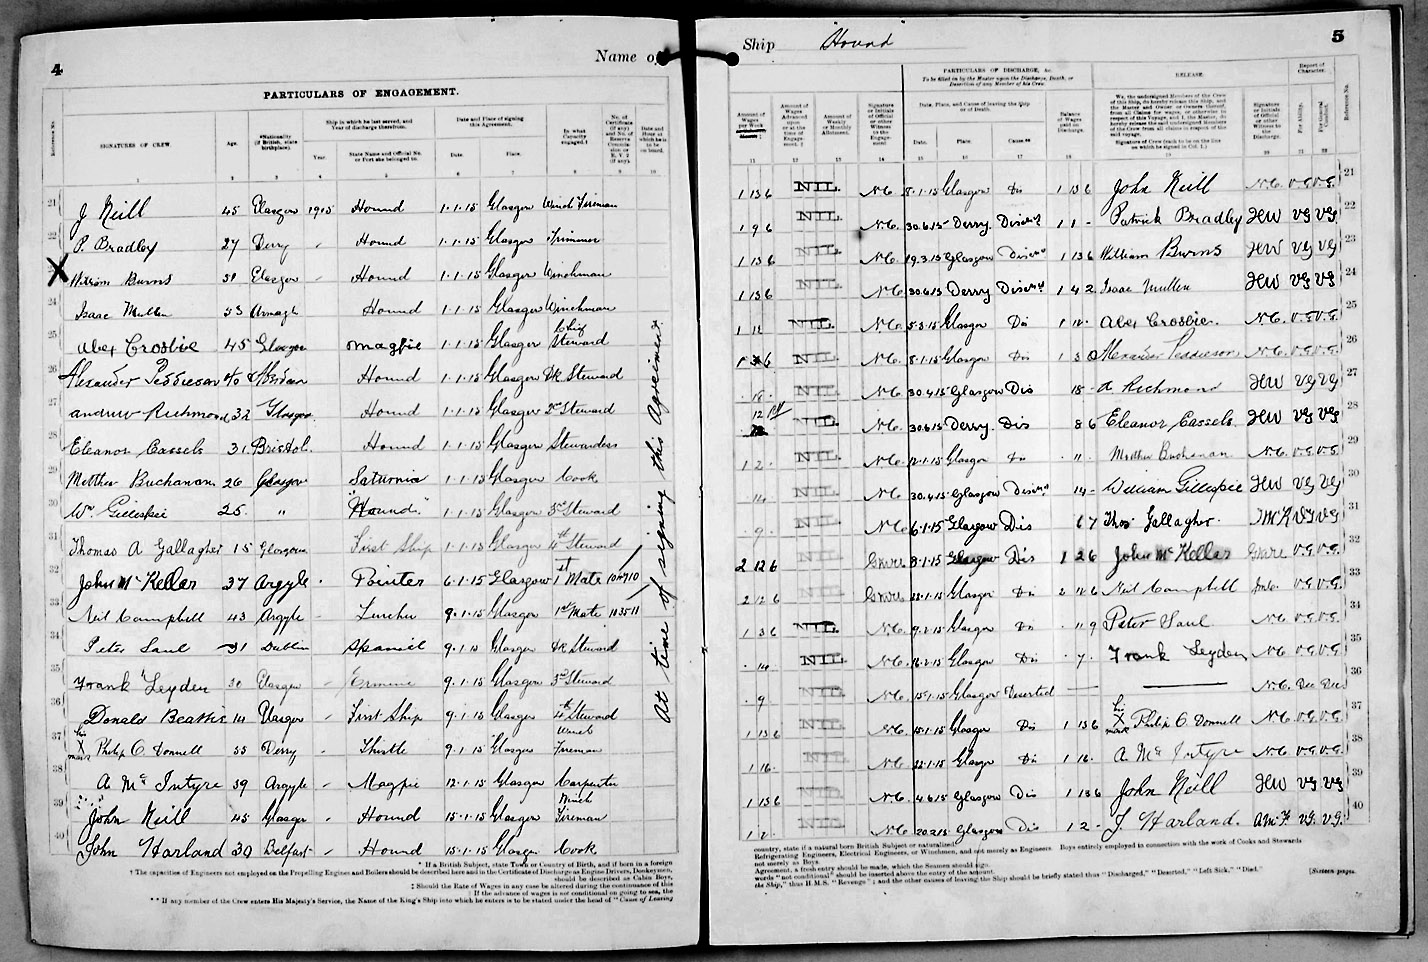 4
Name of
PARTICULARS OF ENGAGEMENT.
SIGNATURES OF CREW.
Age.
*Nationality (If British, state birthplace).
Ship in which he last served, and Year of discharge therefrom.
Year.
State Name and Official No. or Port she belonged to.
Date and Place of signing this Agreement.
Date.
Place.
In what Capacity engaged.†
Date and Hour at which he is to be on board.
21 J Neill 45 Glasgow 1915 Hound 1.1.15 Glasgow Winch Fireman
22 P. Bradley 27 Derry Hound 1.1.15 Glasgow Trimmer
X William Burns 31 Glasgow Hound 1.1.15 Glasgow Winchman
24 Isaac Mullen 33 Armagh Hound 1.1.15 Glasgow Winchman
25 Alex Crosbie 45 Glasgow Magpie 1.1.15 Glasgow Chief Steward
26 Alexander 40 Aberdeen Hound 1.1.15 Glasgow Steward
27 Andrew Richmond 32 Glasgow Hound 1.1.15 Glasgow 2nd Steward
28 Eleanor Cassels 31 Bristol. Hound 1.1.15 Glasgow Stewardess
29 Matthew Buchanan 26 Glasgow Saturnia 1.1.15 Glasgow Cook
30 Wm Gillespie 25 " "Hound" 1.1.15 Glasgow 3rd Steward
31 Thomas A Gallagher 15 Glasgow First Ship 1.1.15 Glasgow 4th Steward
32 John McKellar 37 Argyle Pointer 6.1.15 Glasgow 1st Mate
33 Neil Campbell 43 Argyle Lurcher 9.1.15 Glasgow 1st Mate
34 Peter Saul 31 Dublin Spaniel 9.1.15 Glasgow Steward
35 Frank Leyden 30 Glasgow Ermine 9.1.15 Glasgow 3rd Steward
36 Donald Beattie 14 Glasgow First Ship 9.1.15 Glasgow 4th Steward
37 his X mark Philip O. Donnell 35 Derry Thistle 9.1.15 Glasgow Winch Fireman
38 A Mc Intyre 39 Argyle Magpie 12.1.15 Glasgow Carpenter
39 John Neill 45 Glasgow Hound 15.1.15 Glasgow Winch Fireman
40 John Harland 30 Belfast Hound 15.1.15 Glasgow Cook
At time of signing this Agreement.
* If a British Subject, state Town or Country of Birth, and if born in a foreign
† The capacities of Engineers not employed on the Propelling Engines and Boilers should be described here and in the Certificate of Discharge as Engine Drivers, Donkeymen,
should be described as Cabin Boys,
‡ Should the Rate of Wages in any case be altered during the continuance of this
‖ If the advance of wages is not conditional on going to sea, the
** If any member of the Crew enters His Majesty's Service, the Name of the King's Ship into which he enters is to be stated under the head of "Cause of Leaving
Ship Hound
5
PARTICULARS OF DISCHARGE, &c.
To be filled in by the Master upon the Discharge, Death, or Desertion of any Member of his Crew.
RELEASE.
Report of Character.
Amount of Wages Advanced upon or at the time of Engagement. ‡
Amount of Weekly or Monthly Allotment.
Signature or Initials of Official or other Witness to the Engagement
Date, Place, and Cause of leaving the Ship or of Death.
Date.
Place.
Cause**
Balance of Wages paid on Discharge.
We, the undersigned Members of the Crew of this Ship, do hereby release this Ship, and the Master and Owner or Owners thereof, from all claims in respect of this Voyage,
Signature of Crew (each to be on the line on which he signed in Col. 1.)
Signature or Initials of Official or other Witness to the Discharge.
For Ability.
Reference No.
1 13 6 NIL. N C. 8.1.15 Glasgow Dis 1 13 6 John Neill N.C. V.G. V.G. 21
1 9 6 NIL. N C. 30.6.15 Derry. 1 1 - Patrick Bradley HW VG VG 22
1 13 6 NIL N C. 19.3.15 Glasgow 1 13 6 William Burns HW VG VG 23
1 13 6 NIL N C. 30.6.15 Derry 1 4 2 Isaac Mullen HW VG VG 24
NIL. N C. 5.3.15 Glasgow Dis Alex Crosbie. N.C. V.G. V.G. 25
NIL. N C. 8.1.15 Glasgow Dis Alexander N.C. V.G. V.G. 26
18. NIL N C. 30.4.15 Glasgow Dis 18 - A Richmond HW VG VG 27
NIL. N C. 30.6.15 Derry. Dis 8 6 Eleanor Cassels. HW VG VG 28
1 2 . NIL N C. 12.1.15 Glasgow Dis 11 Matthew Buchanan N.C. V.G. V.G. 29
14 NIL N C. 30.4.15 Glasgow 14 - William Gillespie HW VG VG 30
9. NIL N C. 6.1.15 Glasgow Dis 6 7 Thos Gallagher. VG VG 31
2 12 6 NIL 8.1.15 Glasgow Dis 1 2 6 John McKellar V.G. V.G. 32
2 12 6 NIL 22.1.15 Glasgow Dis Neil Campbell V.G. V.G. 33
1 3 6 NIL. N C. Glasgow Dis 11 9 Peter Saul N.C. V.G. V.G. 34
14 NIL. N C. Glasgow Dis 7. Frank Leyden N C V.G. V.G. 35
9 NIL N C. 15.1.15 Glasgow Deserted N.C. Dec Dec 36
1 13 6 NIL N C. 15.1.15 Glasgow Dis 1 13 6 his X mark Philip O. Donnell N.C. V.G. V.G. 37
1 16. NIL N C. 22.1.15 Glasgow Dis 1 16. A Mc Intyre N C V.G. V.G. 38
1 13 6 NIL N C. 4.6.15 Glasgow Dis 1 13 6 John Neill HW VG VG 39
1 2. NIL N C. 20.2.15 Glasgow Dis 1 2 - J. Harland. V.G. V.G. 40
country, state if a natural born British Subject or naturalized.
Refrigerating Engineers, Electrical Engineers, or Winchmen, and not merely as Engineers. Boys entirely employed in connection with the work of Cooks and Stewards
not merely as Boys.
Agreement, a fresh entry should be made, which the Seamen should sign.
words "not conditional" should be inserted above the entry of the amount.
the Ship," thus H.M.S. "Revenge"; and the other causes of leaving the Ship should be briefly stated thus "Discharged," "Deserted," "Left Sick," "Died."
[Sixteen pages.